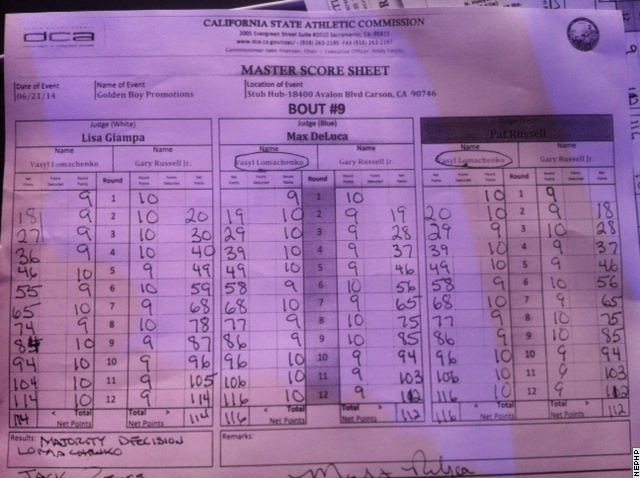 dca
CALIFORNIA STATE ATHLETIC COMMISSION
2005 Evergreen Street Suite #2010 Sacramento, CA. 95815
MASTER SCORE SHEET
Date of Event Name of Event Location of Event
06/21/14 Golden Boy Promotions Stub Hub-18400 Avalon Blvd Carson, CA 90746
BOUT #9
Judge (White) Judge (Blue)
Lisa Giampa Max DeLuca Pat Russell
Name Name Name Name Name
Vasyl Lomachenko Gary Russell Jr. Vasyl Lomachenko Gary Russell Jr. Vasyl Lomachenko Gary Russell Jr.
Net Points Points Deducted Net Points Round Net Points Points Deducted Net Points Net Points Points Deducted Net Points Round Net Points Points Deducted Net Points Net Points Points Deducted Net Points Round Net Points Points Deducted Net Points
9 1 10 9 1 10 10 1 9
18 9 2 10 20 19 10 2 9 19 20 10 2 9 18
27 9 3 10 30 29 10 3 9 28 29 9 3 10 28
36 9 4 10 40 39 10 4 9 37 39 10 4 9 37
46 10 5 9 49 49 10 5 9 46 49 10 5 9 46
55 9 6 10 59 58 9 6 10 56 58 9 6 10 56
65 10 7 9 68 68 10 7 9 65 68 10 7 9 65
74 9 8 10 78 77 9 8 10 75 77 9 8 10 75
84 10 9 9 87 86 9 9 10 85 86 9 9 10 85
94 10 10 9 96 96 10 10 9 94 96 10 10 9 94
104 10 11 9 105 106 10 11 9 103 106 10 11 9 103
114 10 12 9 114 116 10 12 9 112 116 10 12 9 112
114 < Total Net Points Total > Net Points 114 116 < Total Net Points Total > Net Points 112 116 < Total Net Points Total > Net Points 112
Results: MAJORITY DECISION Remarks:
LOMACHENKO
NEPHP